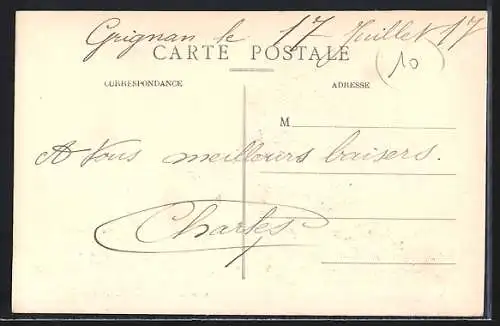 Grignan le 17 Juillet 17
CARTE POSTALE
10
CORRESPONDANCE
ADRESSE
M
A Vous meilleurs baisers.
Charles